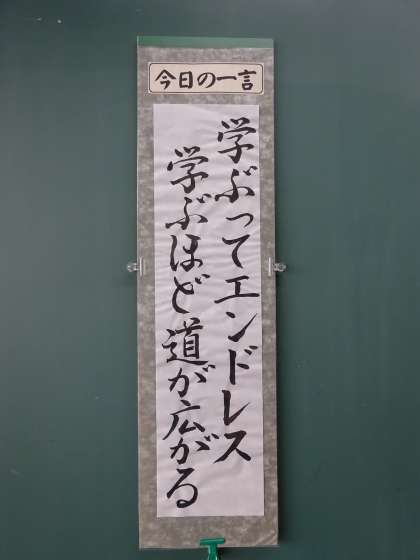 今日の一言
学ぶってエンドレス
学ぶほど道が広がる